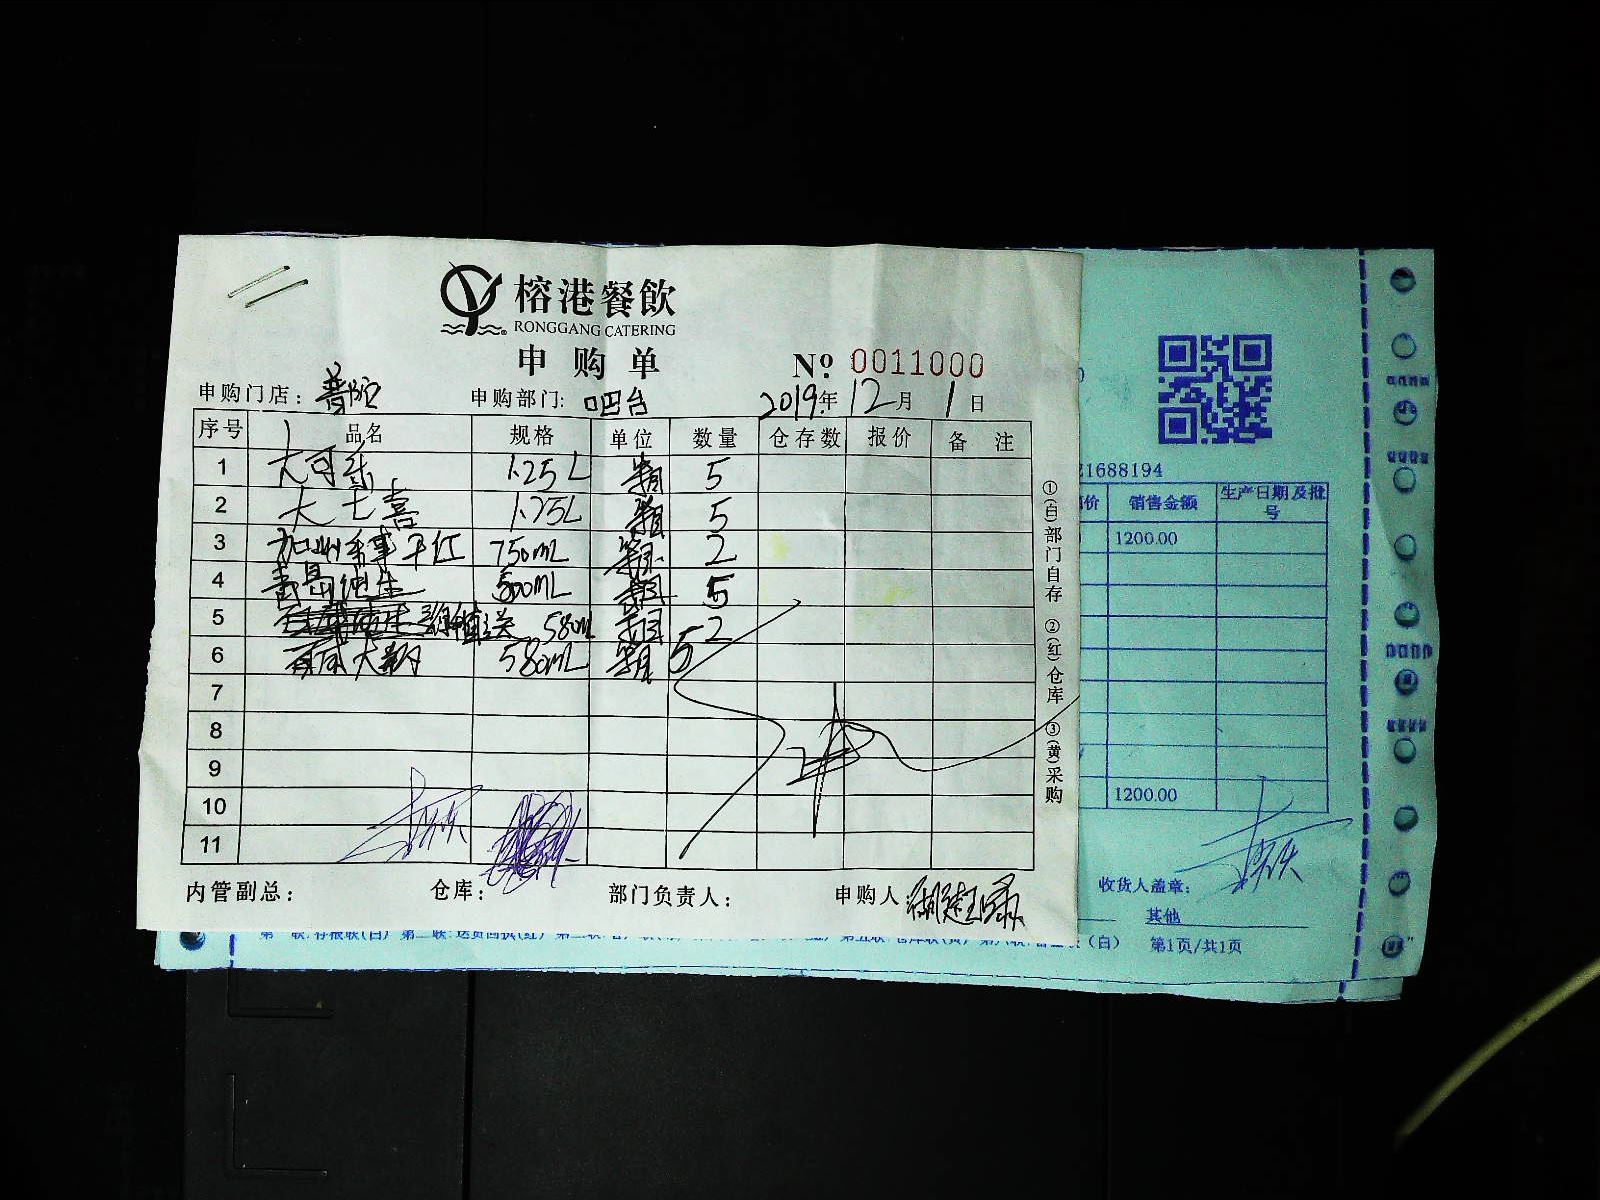 榕港餐飲
RONGGANG CATERING
申购单
№ 0011000
申购门店：普陀 申购部门：吧台 2019年12月1日
序号 品名 规格 单位 数量 仓存数 报价 备注
1 大可乐 1.25L 箱 5
2 大七喜 1.25L 箱 5
3 干红 750mL 箱 2
4 青岛纯生 500mL 箱 5
5 580mL 箱 2
6 百威大 580mL 箱 5
7
8
9
10
11
内管副总： 仓库： 部门负责人： 申购人：
①(白)部门自存 ②(红)仓库 ③(黄)采购
21688194
价 销售金额 生产日期及批号
1200.00
1200.00
收货人盖章：
其他
(白) 第1页/共1页